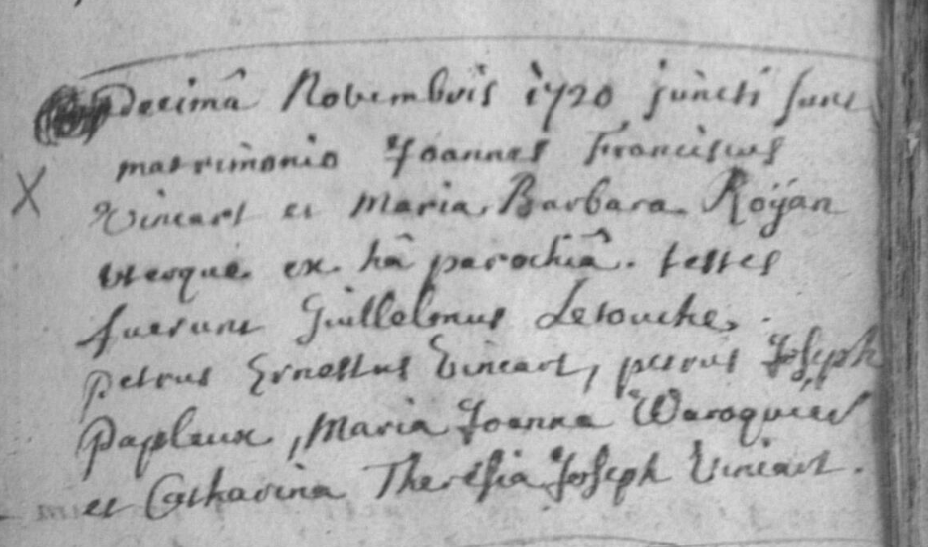 decimâ Novembris 1720 juncti sunt
matrimonio Joannes Franciscus
Vincart et Maria Barbara Roÿan
uterque ex hâ parochiâ. testes
fuerunt Guillelmus Letouche,
petrus Ernestus Vincart, petrus Joseph
Papleux, Maria Joanna Waroquier
et Catharina Theresia Joseph Vincart.